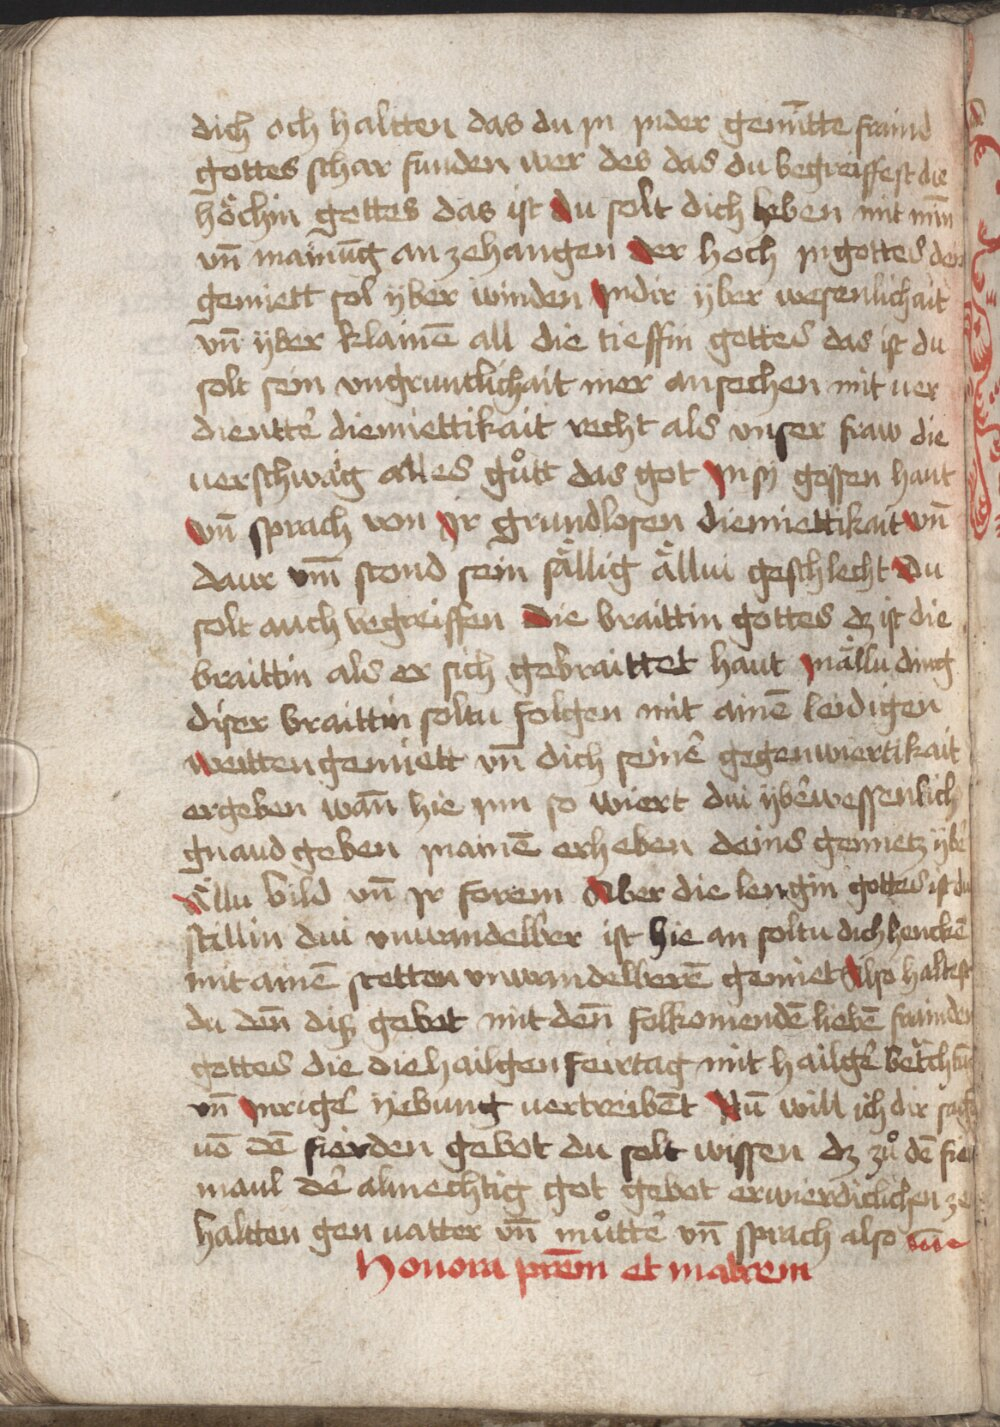 dich och haltten das du jn jnder gemn̄tte fraind
gottes schar funden wer des das du begreiffest die
höchin gottes das ist du solt dich heben mit min
vn̄ mainūg an zehangen der hoch jn gottes den
gemiett sol yber winden jndir yber wesenlichait
vn̄ yber klainē all die tieffin gottes das ist du
solt sein vngruntlichait mer ansechen mit uer
dientte diemiettikait recht als vnser fraw die
uerschwāg alles gůtt das got jn sy gossen haut
vn̄ sprach von jr grundlosen diemiettikait vn̄
daur vm̄ stond sein sällig ällui geschlecht du
solt auch begreiffen die braittin gottes dz ist die
braittin als er sich gebraittet haut jn ällu ding
diser braittin soltu folgen mit ainē leidigen
weitten gemiett vn̄ dich seinē gegenwiertikait
ergeben wan̄ hie jnn so wiert dui yberwessenlich
gnaud geben jn ainē erheben deins gemietz yber
ällu bild vn̄ jr forem Aber die lengin gottes ist du
stillin dui vnwandelber ist hie an soltu dich henckē
mit ainē stetten vnwandelberē gemiet Also haltest
du den̄ dis gebot mit den̄ folkomendē liebē frainden
gottes die die hailgen feirtag mit hailgē
vn̄ jnrigē yebung uertreibent Nū will ich dir sagē
uō dē fierden gebot du solt wissen dz zů dē fier
maul dē almechtig got gebot erwierdiclichen ze
haltten gen uatter vn̄ můtter vn̄ sprach also
Honora prēm et matrem